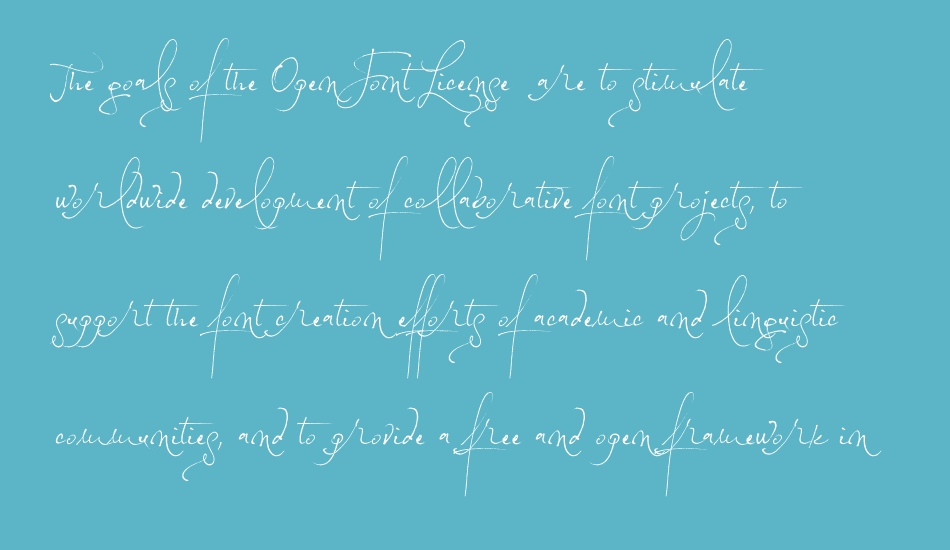 The goals of the Open Font License are to stimulate
worldwide development of collaborative font projects, to
support the font creation efforts of academic and linguistic
communities, and to provide a free and open framework in